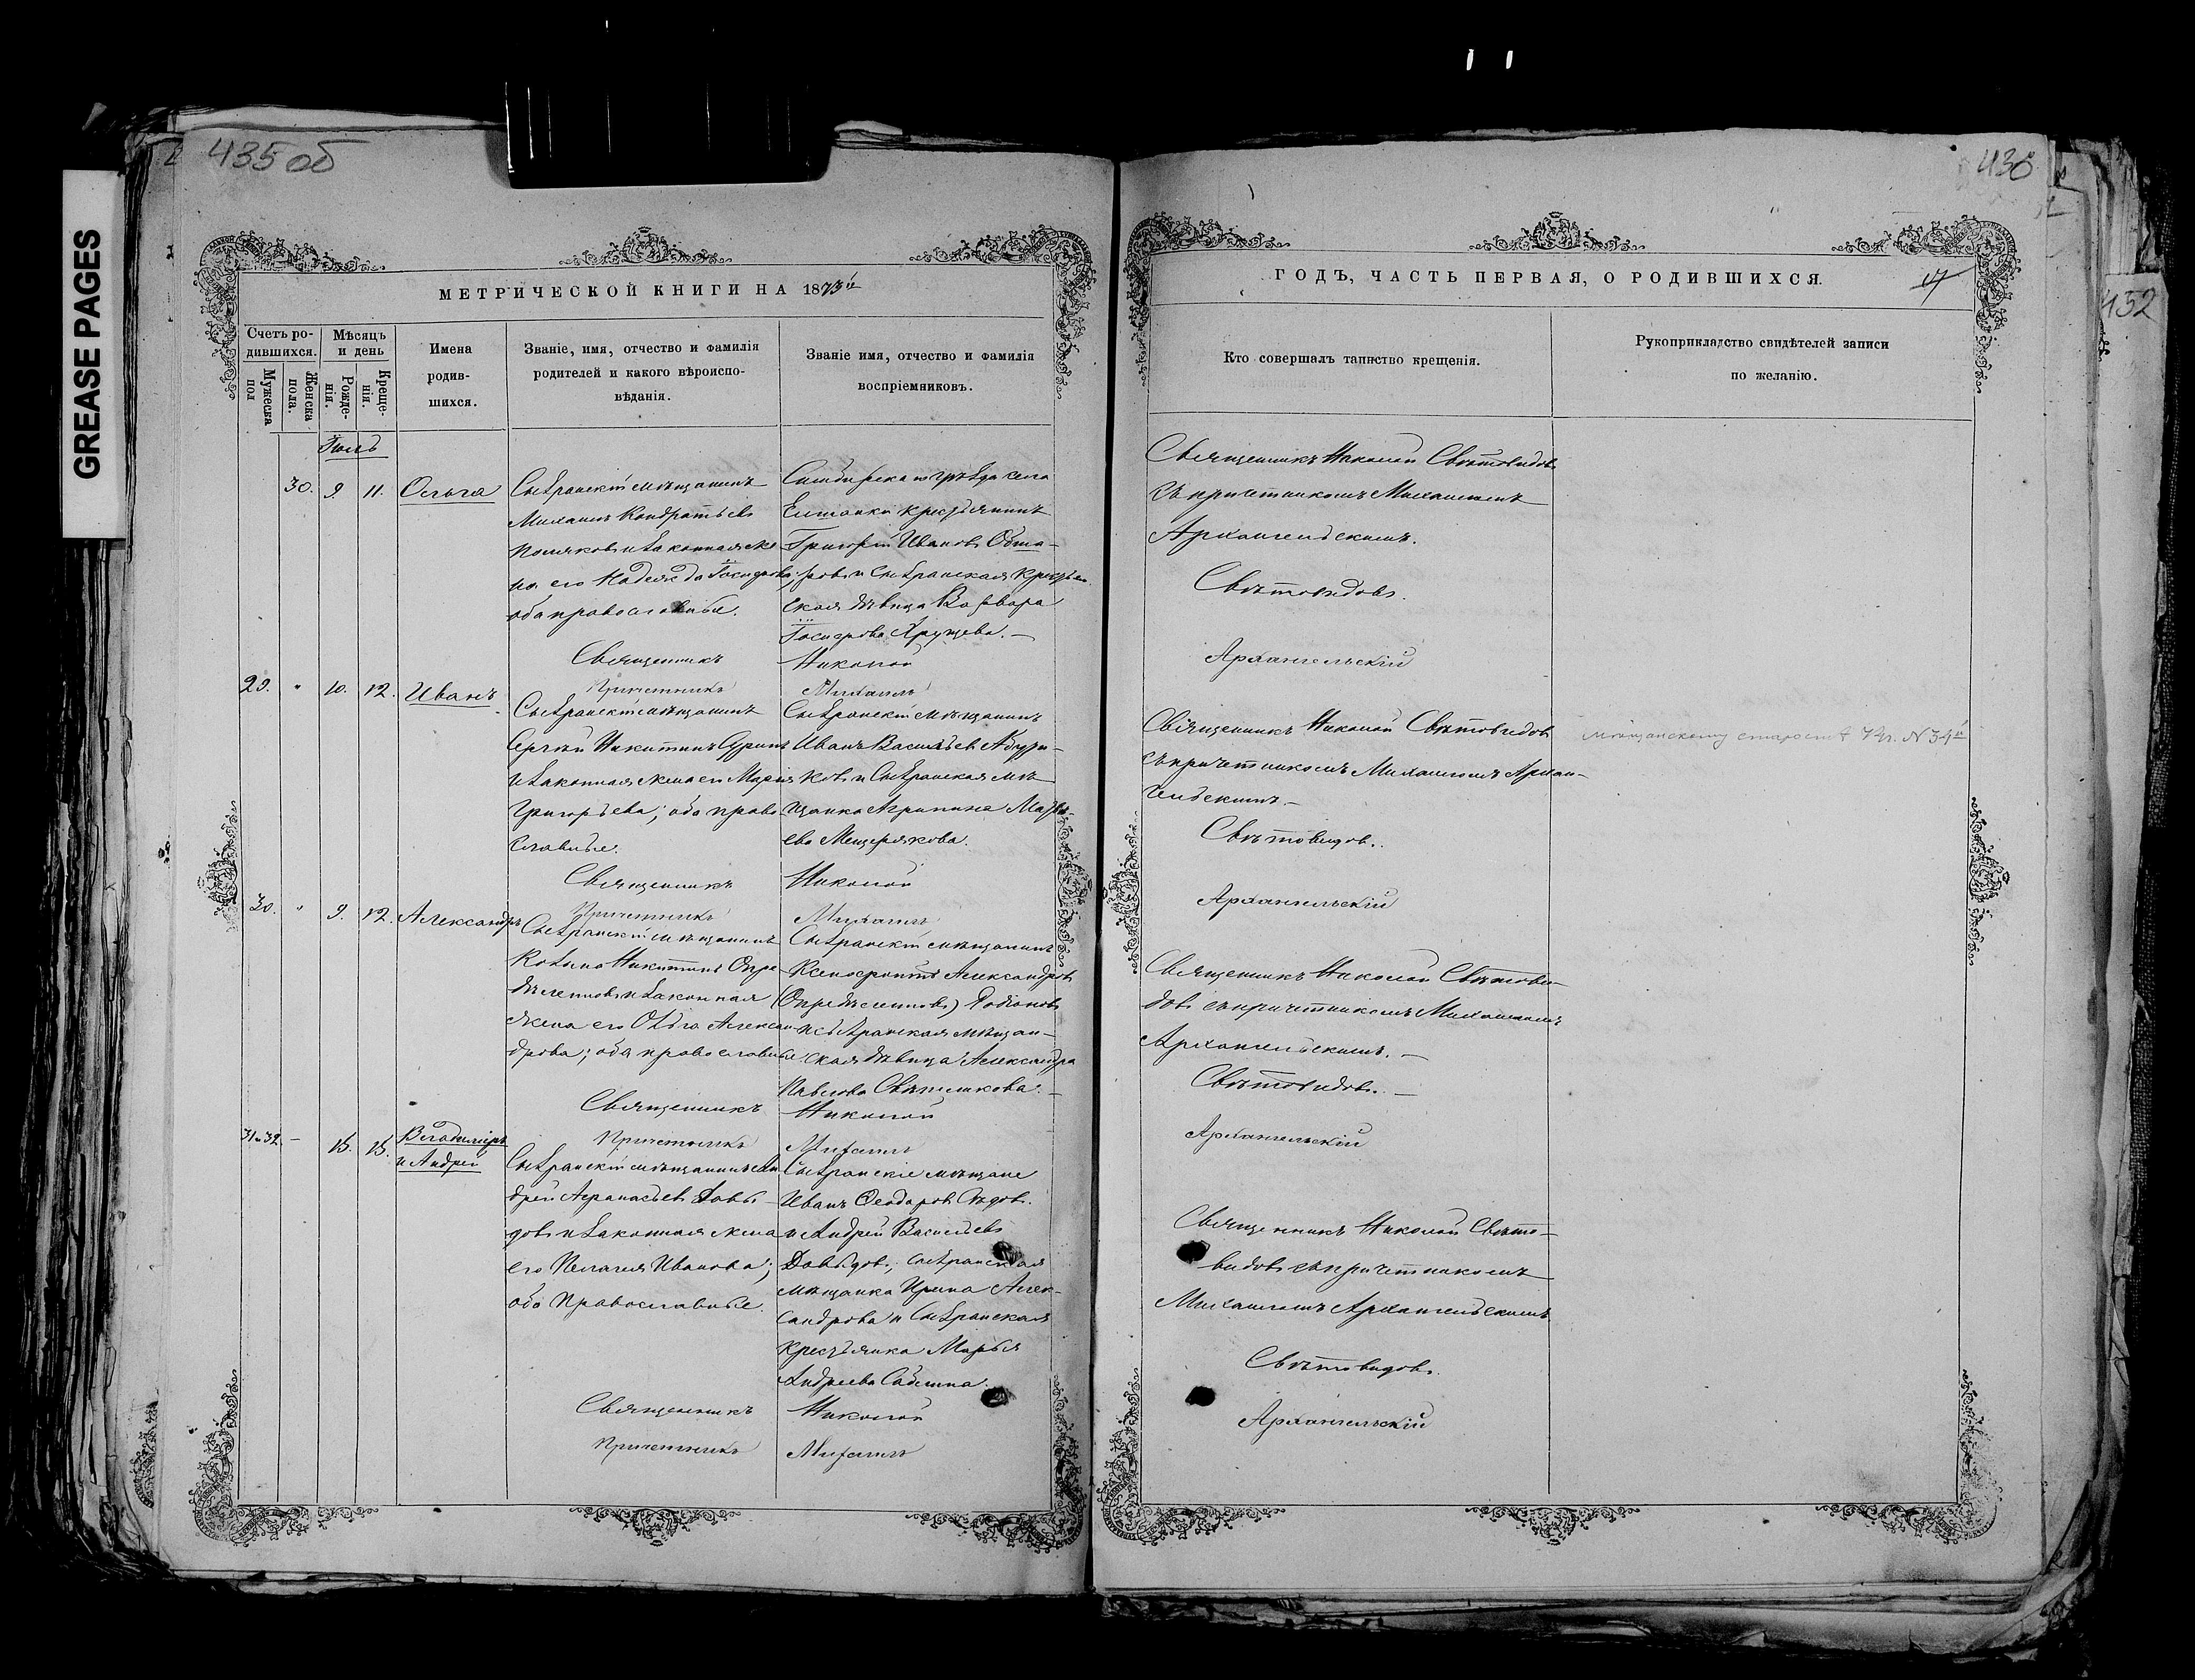 GREASE PAGES
435 об
МЕТРИЧЕСКОЙ КНИГИ НА 1873й
Счетъ ро-
дившихся.
Мужеска
пол
Женска
пола.
Мѣсяцъ
и день
Рожде-
нія.
Креще-
нія.
Имена
родив-
шихся.
Званіе, имя, отчество и фамилія
родителей и какого вѣроиспо-
вѣданія.
Званіе имя, отчество и фамилія
воспріемниковъ.
Іюль
30. 9. 11. Ольга
Сызранскій мѣщанинъ
Михаилъ Кондратьевъ
Поляковъ и законная же-
на его Надежда
оба православные.
Симбирскаго уѣзда села
Елшанки крестьянинъ
Григорій Ивановъ
и Сызранская
ская дѣвица Варвара
Хрущева.
Священникъ Николай
Причетникъ Михаилъ
29. " 10. 12. Иванъ
Сызранскій мѣщанинъ
Сергѣй Никитинъ
и законная жена его Марія
Григорьева; оба право-
славные.
Сызранскій мѣщанинъ
Иванъ Васильевъ
ковъ и Сызранская мѣ-
щанка Агрипина
ева Мещерякова.
Священникъ Николай
Причетникъ Михаилъ
30. " 9. 12. Александръ
Сызранскій мѣщанинъ
Козьма Никитинъ Опре-
дѣленновъ и законная
жена его Ольга Алексан-
дрова; оба православные
Сызранскій мѣщанинъ
Ксенофонтъ Александровъ
(Опредѣленновъ) Родіоновъ
и сызранская мѣщан-
ская дѣвица Александра
Павлова Свѣшникова.
Священникъ Николай
Причетникъ Михаилъ
31 и 32. — 15. 15. Владиміръ
и Андрей
Сызранскій мѣщанинъ Ан-
дрей Афанасьевъ Давы-
довъ и законная жена
его Пелагия Иванова;
оба Православные.
Сызранскіе мѣщане
Иванъ Феодоровъ Сѣдовъ
и Андрей Васильевъ
Давыдовъ; сызранская
мѣщанка Ирина Алек-
сандрова и Сызранская
крестьянка Марья
Андреева
Священникъ Николай
Причетникъ Михаилъ
436
ГОДЪ, ЧАСТЬ ПЕРВАЯ, О РОДИВШИХСЯ.
Кто совершалъ таинство крещенія.
Рукоприкладство свидѣтелей записи
по желанію.
Священникъ Николай Свѣтовидовъ
съ причетникомъ Михаиломъ
Архангельскимъ.
Свѣтовидовъ.
Архангельскій
Священникъ Николай Свѣтовидовъ
съ причетникомъ Михаиломъ Архан-
гельскимъ.
Свѣтовидовъ.
Архангельскій
Мѣщанскому старостѣ № 34й
Священникъ Николай Свѣтови-
довъ съ причетникомъ Михаиломъ
Архангельскимъ.
Свѣтовидовъ.
Архангельскій
Священникъ Николай Свѣто-
видовъ съ причетникомъ
Михаиломъ Архангельскимъ
Свѣтовидовъ.
Архангельскій
432